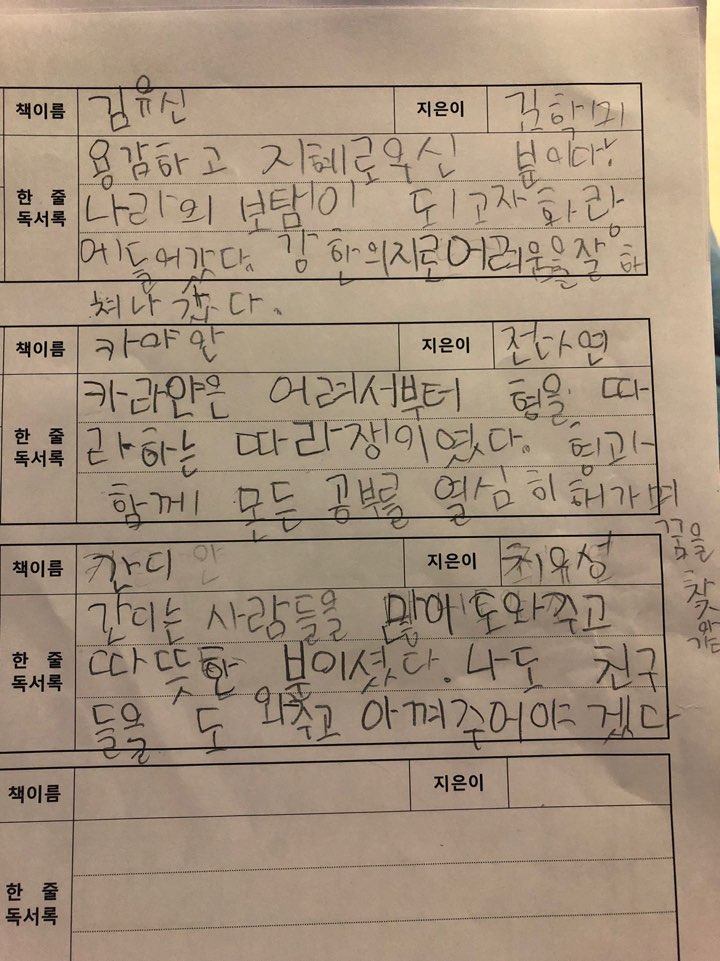 책이름 김유신 지은이 김학미
용감하고 지혜로우신 분이다.
한 줄 독서록 나라의 보탬이 되고자 화랑
에 들어갔다. 강한의지로어려움을잘 하
쳐나 갔다.
책이름 카라얀 지은이 전다연
카라얀은 어려서부터 형을 따
한 줄 독서록 라하는 따라쟁이였다. 형과
함께 모든 공부를 열심히 해가며
꿈을
찾
와
갔다
책이름 간디 지은이 최유성
간디는 사람들을 많이 도와주고
한 줄 독서록 따뜻한 분이셨다. 나도 친구
들을 도와주고 아껴주어야겠다
책이름 지은이
한 줄 독서록